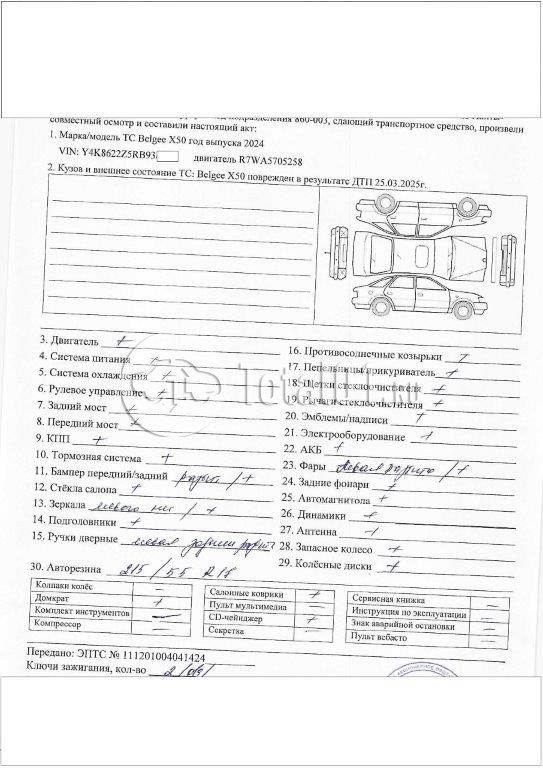 совместный осмотр и составили настоящий акт:
1. Марка/модель ТС Belgee X50 год выпуска 2024
VIN: Y4K8622Z5RB93 двигатель R7WA5705258
2. Кузов и внешнее состояние ТС: Belgee X50 поврежден в результате ДТП 25.03.2025г.
3. Двигатель +
4. Система питания +
5. Система охлаждения +
6. Рулевое управление +
7. Задний мост +
8. Передний мост +
9. КПП +
10. Тормозная система +
11. Бампер передний/задний разбит / +
12. Стёкла салона +
13. Зеркала левого нет / +
14. Подголовники +
15. Ручки дверные левая задняя
16. Противосолнечные козырьки +
17. Пепельницы/прикуриватель +
18. Щетки стеклоочистителя +
19. Рычаги стеклоочистителя +
20. Эмблемы/надписи +
21. Электрооборудование +
22. АКБ +
23. Фары левая разбита / +
24. Задние фонари +
25. Автомагнитола +
26. Динамики +
27. Антенна +
28. Запасное колесо +
29. Колёсные диски +
30. Авторезина 215 / 55 R18
Колпаки колёс –
Домкрат +
Комплект инструментов –
Компрессор –
Салонные коврики +
Пульт мультимедиа –
CD-чейнджер +
Секретка –
Сервисная книжка –
Инструкция по эксплуатации –
Знак аварийной остановки –
Пульт вебасто –
Передано: ЭПТС № 111201004041424
Ключи зажигания, кол-во 2